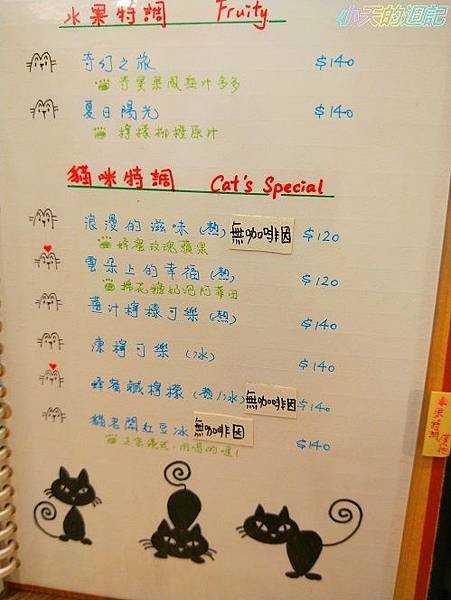 小天的週記
水果特調 Fruity
奇幻之旅 $140
夏日陽光 $140
檸檬柳橙原汁
貓咪特調 Cat's Special
浪漫的滋味 (熱) 無咖啡因 $120
蜂蜜玫瑰蘋果
雲朵上的幸福 (熱) $120
棉花糖奶泡阿華田
薑汁檸檬可樂 (熱) $140
凍檸可樂 (冰) $140
蜂蜜鹹檸檬 (熱/冰) 無咖啡因 $140
貓老闆紅豆冰 無咖啡因 $140
用喝的喔!